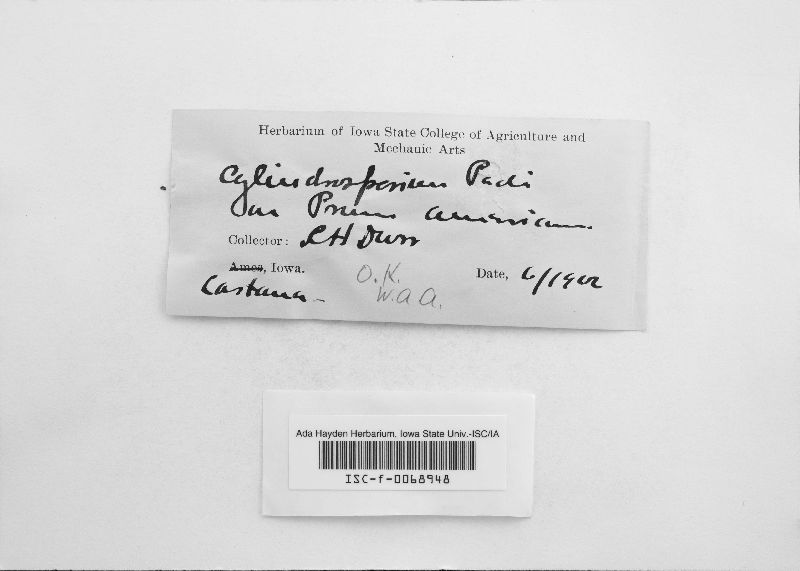 Herbarium of Iowa State College of Agriculture and
Mechanic Arts
Cylindrosporium Padi
on Prunus americana
Collector: LH
Ames, Iowa.
Castana
O.K.
W.a a.
Date, 6/1902
Ada Hayden Herbarium, Iowa State Univ.-ISC/IA
ISC-f-0068948